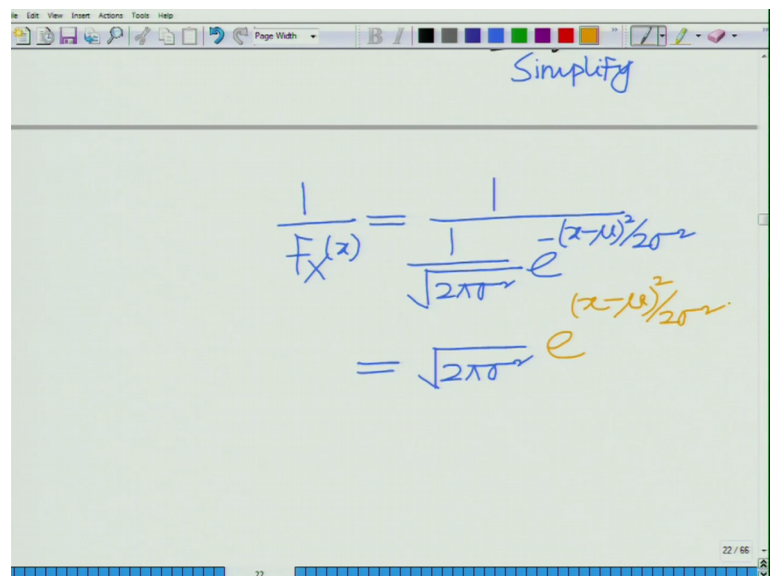 le Edit View Insert Actions Tools Help
Page Width B I
Simplify
1/F_X(x) = 1/(1/√(2πσ²) e^(-(x-μ)²/2σ²))
= √(2πσ²) e^((x-μ)²/2σ²)
22 / 66
22